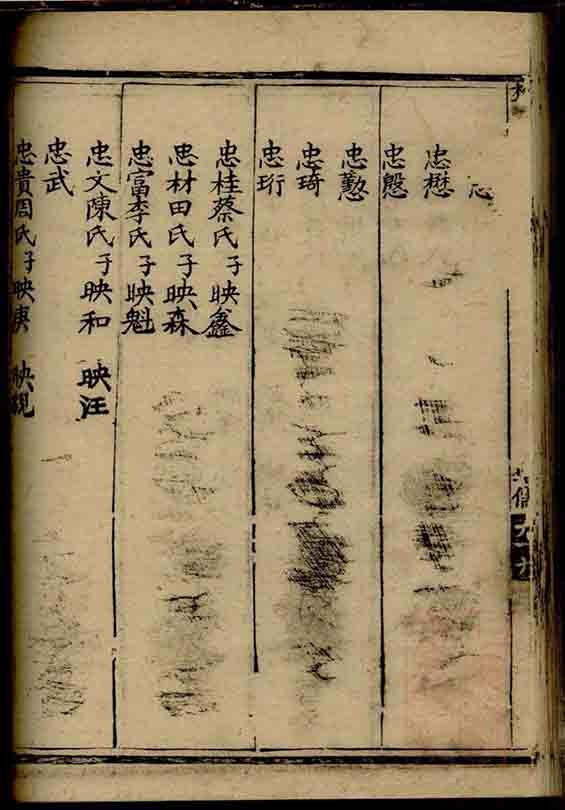 忠懋
忠慇
忠懃
忠琦
忠珩
忠桂蔡氏子映鑫
忠材田氏子映森
忠富李氏子映魁
忠文陳氏子映和 映汪
忠武
忠貴周氏子映庚 映規